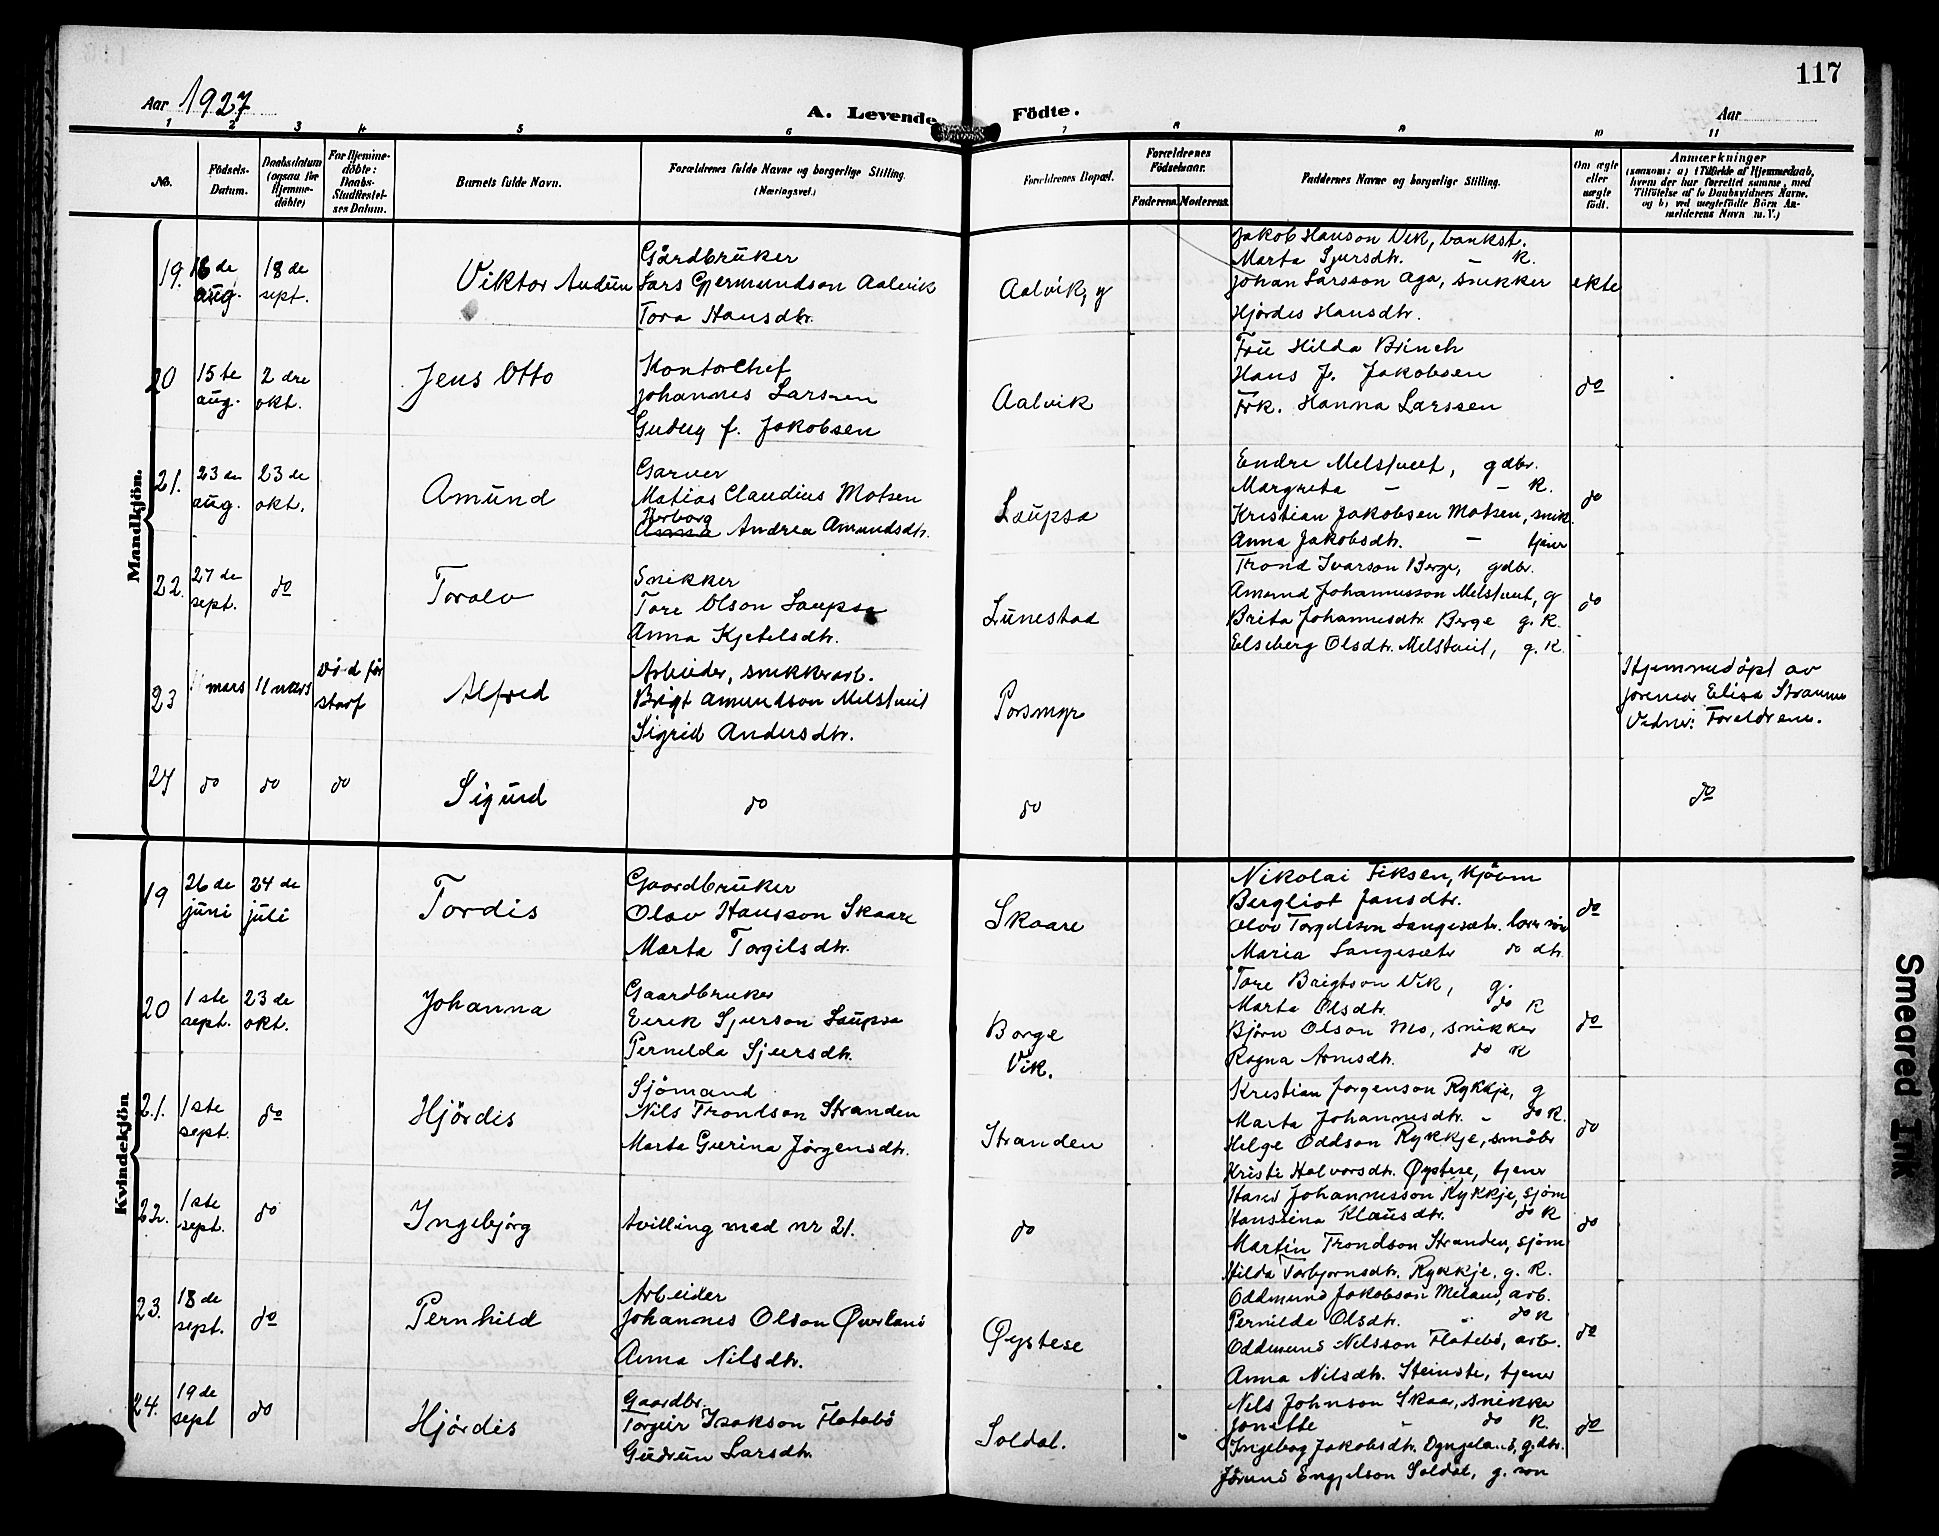 117
Aar 1927
A. Levende Födte.
Aar
1 2 3 4 5 6 7 8 9 10 11
No.
Födsels-Datum.
Daabsdatum (ogsaa for Hjemme-döbte)
For Hjemme-döbte: Daabs-Stadfæstel-ses Datum.
Barnets fulde Navn.
Forældrenes fulde Navne og borgerlige Stilling. (Næringsvei.)
Forældrenes Bopæl.
Forældrenes Födselsaar.
Faderens Moderens
Faddernes Navne og borgerlige Stilling.
Om ægte eller uægte födt.
Anmærkninger
(saasom: a) i Tilfælde af Hjemmedaab, hvem der har forrettet samme, med Tilföielse af to Daabsvidners Navne, og b) ved uægtefödte Börn An-melderens Navn m. V.)
Mandkjön.
19. 16 de aug. 18 de sept.
Viktor Audun
Gårdbruker
Lars Gjermundson Aalvik
Tora Hansdtr.
Aalvik, y
Jakob Hanson Vik, bankst.
Marta Sjursdtr. - k.
Johan Larsson Aga, snikker
Hjördis Hansdtr.
ekte
20 15 te aug. 2 dre okt.
Jens Otto
Kontorchef
Johannes Larssen
Gudny f. Jakobsen
Aalvik
Fru Hilda Brinch
Hans J. Jakobsen
Frk. Hanna Larssen
do
21. 23 de aug. 23 de okt.
Amund
Garver
Matias Claudius Motzen
Herborg
Anna Andrea Amundsdtr.
Laupsa
Endre Melstveit, gdbr.
Margreta - - k.
Kristian Jakobsen Motzen, snik.
Anna Jakobsdtr. - tjener
do
22. 27 de sept. do
Toralv
Snikker
Tore Olson Laupsa
Anna Kjetelsdtr.
Lunestad
Trond Ivarson Berge, gdbr.
Amund Johannesson Melstveit, g
Brita Johannesdtr. Berge g. k.
Elseberg Olsdtr. Melstveit, g. k.
do
23 11 mars 11 mars död för stadf
Alfred
Arbeider, snikkerarb.
Brigt Amundson Melstveit
Sigrid Andersdtr.
Porsmyr
Hjemmedöpt av
jormor Elisa Straume
Vidner: Foreldrene.
24 do do do
Sigurd
do
do
do
Kvindekjön
19 26 de juni 24 de juli
Tordis
Gaardbruker
Olav Hansson Skaare
Marta Torgilsdtr.
Skaare
Nikolai Fiksen, kjöpm
Bergliot Jansdtr.
Olav Torgilsson Langesæter. lærersön
Maria Langesæter do dtr.
do
20 1 ste sept. 23 de okt.
Johanna
Gaardbruker
Eirik Sjurson Laupsa
Pernilda Sjursdtr.
Borge
Vik.
Tore Brigtson Vik, g.
Marta Olsdtr. do k
Björn Olson Mo, snikker
Ragna Arnesdtr. do k
do
21. 1 ste sept. do
Hjördis
Sjömand
Nils Trondson Stranden
Marta Gurina Jörgensdtr.
Stranden
Kristian Jörgenson Rykkje, g
Marta Johannesdtr. - do k.
Helge Oddson Rykkje, småbr
Kristi Halvorsdtr. Øystese, tjener
do
22. 1 ste sept. do
Ingebjörg
tvilling med nr 21.
do
Hans Johannesson Rykkje, sjöm
Hanssina Klausdtr. do k
Martin Trondson Stranden, sjöm
Hilda Torbjörnsdtr. Rykkje. g. k.
do
23. 18 de sept. do
Pernhild
Arbeider
Johannes Olson Øverland
Anna Nilsdtr.
Øystese
Oddmund Jakobson Meland, arb.
Pernilda Olsdtr. " do k
Oddmund Nilsson Flatebö, arb.
Anna Nilsdtr. Steinstö, tjener
do
24. 19 de sept do
Hjördis
Gaardbr.
Torgeir Isakson Flatebö
Gudrun Larsdtr.
Soldal.
Nils Johnson Skaar, snikker
Jonette - do k.
Ingeborg Jakobsdtr. g.dtr.
Jörund Engjelson Soldal, g. son
do
Smeared Ink